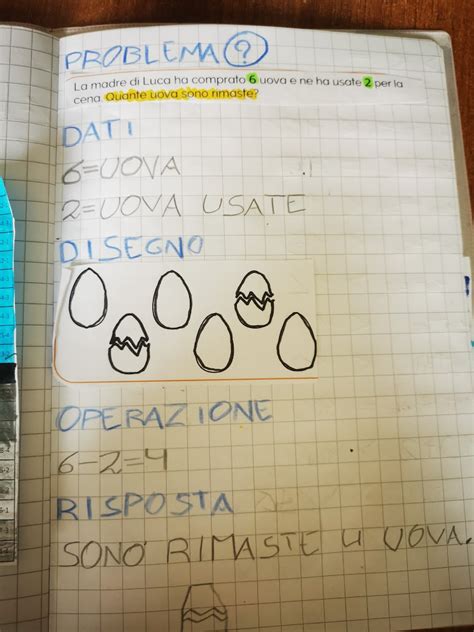 PROBLEMA ?
La madre di Luca ha comprato 6 uova e ne ha usate 2 per la
cena. Quante uova sono rimaste?
DATI
6=UOVA
2=UOVA USATE
DISEGNO
OPERAZIONE
6-2=4
RISPOSTA
SONO RIMASTE 4 UOVA.